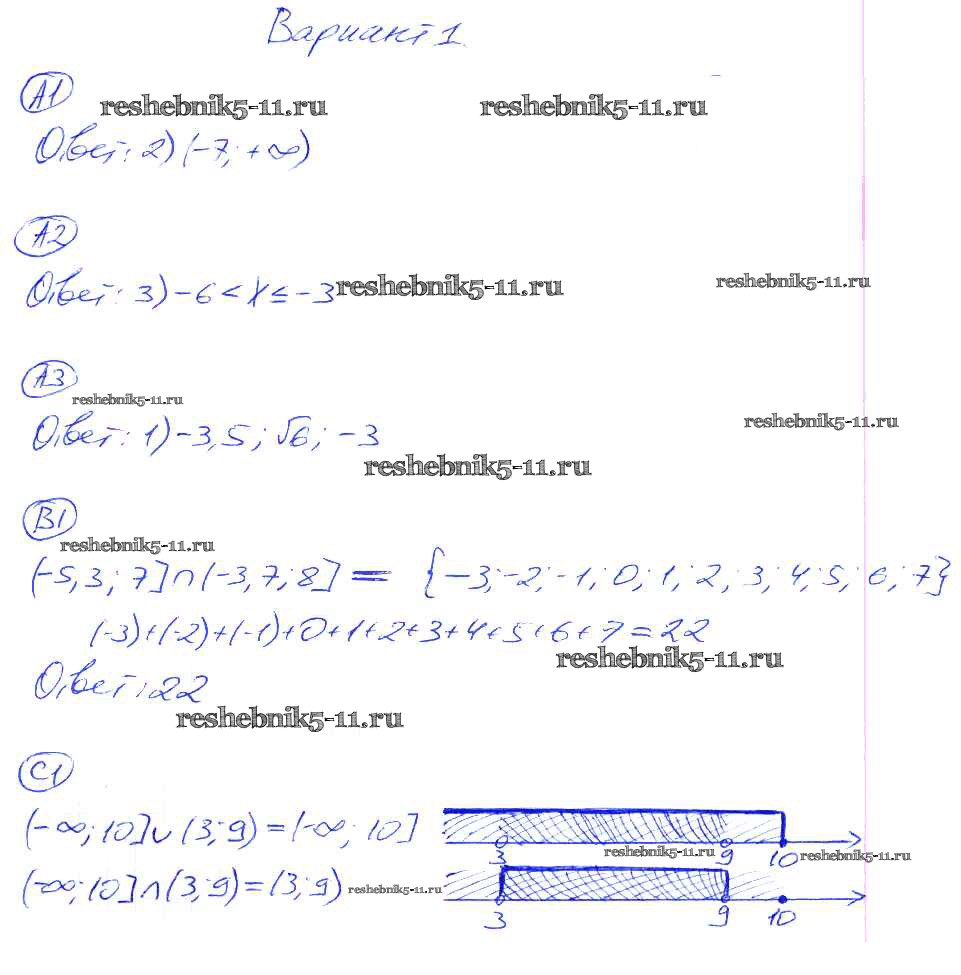 Вариант 1
A1
reshebnik5-11.ru reshebnik5-11.ru
Ответ: 2) (-7; +∞)
A2
Ответ: 3) -6 < x ≤ -3 reshebnik5-11.ru reshebnik5-11.ru
A3
reshebnik5-11.ru
Ответ: 1) -3,5; √6; -3 reshebnik5-11.ru
reshebnik5-11.ru
B1
reshebnik5-11.ru
(-5,3; 7] ∩ (-3,7; 8] = {-3; -2; -1; 0; 1; 2; 3; 4; 5; 6; 7}
(-3)+(-2)+(-1)+0+1+2+3+4+5+6+7=22
reshebnik5-11.ru
Ответ: 22
reshebnik5-11.ru
C1
(-∞; 10] ∪ (3; 9) = (-∞; 10]
3 reshebnik5-11.ru 9 10 reshebnik5-11.ru
(-∞; 10] ∩ (3; 9) = (3; 9) reshebnik5-11.ru
3 9 10